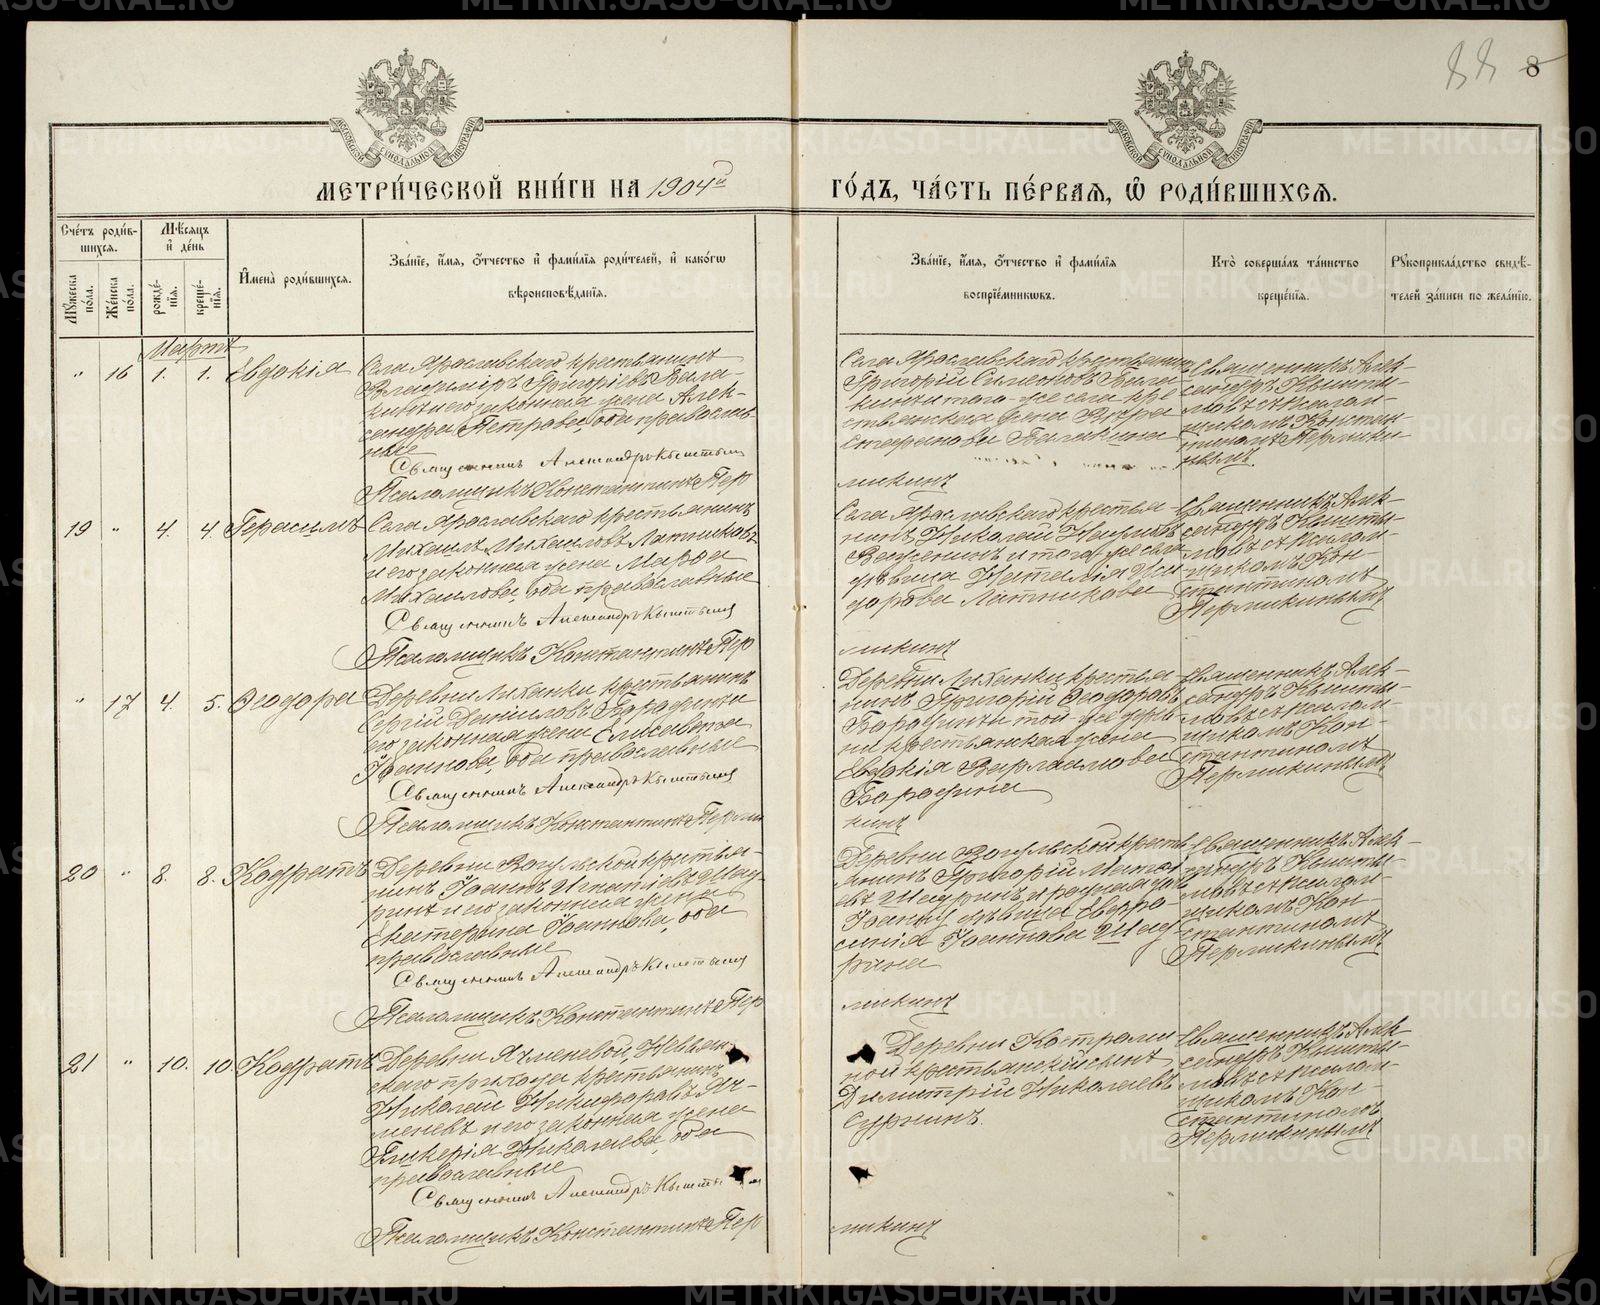 88 8
МОСКОВСКОЙ СУНОДАЛЬНОЙ ТИПОГРАФІИ
МОСКОВСКОЙ СУНОДАЛЬНОЙ ТИПОГРАФІИ
МЕТРИ́ЧЕСКОЙ КНИ́ГИ НА 1904й
ГО́ДЪ, ЧА́СТЬ ПЕ́РВАѦ, Ѡ РОДИ́ВШИХСѦ.
Сче́тъ роди́в-
шихсѧ.
Мꙋжеска по́ла.
Же́нска по́ла.
Мѣ́сѧцъ
и҆ де́нь
рожде́-
нїѧ.
креще́-
нїѧ.
И҆мена̀ роди́вшихсѧ.
Зва́нїе, и҆́мѧ, ѻ҆́тчество и҆ фами́лїѧ роди́телей, и҆ како́гѡ
вѣроисповѣ́данїѧ.
Зва́нїе, и҆́мѧ, ѻ҆́тчество и҆ фами́лїѧ
воспрїе́мникѡвъ.
Кто̀ соверша́лъ та́инство
креще́нїѧ.
Рꙋкоприкла́дство свидѣ́-
телей за́писи по жела́нїю.
Мартъ
" 16 1. 1. Евдокія
Села Ярославскаго крестьянинъ
Владиміръ Григоріевъ Бала-
кинъ и его законная жена Алек-
сандра Петрова, оба православ-
ные
Священникъ Александръ Кыштымовъ
Псаломщикъ Константинъ Пер
Села Ярославскаго крестьянинъ
Григорій Симеоновъ Бала-
кинъ и того-же села кре
стьянская жена Вѣра
Стефанова Балакина
ликинъ
Священникъ Алек-
сандръ Кышты-
мовъ съ псалом-
щикомъ Констан
тиномъ Перлики-
нымъ
19 " 4. 4. Герасимъ
Села Ярославскаго крестьянинъ
Михаилъ Михаиловъ Латниковъ
и его законная жена Марѳа
Михаилова, оба православные
Священникъ Александръ Кыштымовъ
Псаломщикъ Константинъ Пер
Села Ярославскаго крестья-
нинъ Николай Наумовъ
и того-же села
дѣвица Наталія Иси
дорова Латникова
ликинъ
Священникъ Алек-
сандръ Кышты-
мовъ съ псалом-
щикомъ Кон-
стантиномъ
Перликинымъ
" 17 4. 5. Ѳеодора
Деревни Луханки крестьянинъ
Сергій Даніиловъ Барадинъ и
его законная жена Елисавета
Іоаннова, оба православные
Священникъ Александръ Кыштымовъ
Псаломщикъ Константинъ Перли
Деревни Луханки крестья
нинъ Григорій Ѳеодоровъ
Барадинъ и той-же дерев-
ни крестьянская жена
Евдокія Варлаамова
Барадина
кинъ
Священникъ Алек-
сандръ Кышты-
мовъ съ псалом-
щикомъ Кон-
стантиномъ
Перликинымъ
20 " 8. 8. Кодратъ
Деревни Вогульской крестья-
нинъ Іоаннъ Игнатіевъ Шад-
ринъ и его законная жена
Екатерина Іоаннова, оба
православные
Священникъ Александръ Кыштымовъ
Псаломщикъ Константинъ Пер
Деревни Вогульской кресть
янинъ Григорій Матѳі
евъ Шадринъ и родная дочь
Іоанну дѣвица Евфро-
синія Іоаннова Шад-
рина
ликинъ
Священникъ Алек-
сандръ Кышты-
мовъ съ псалом-
щикомъ Кон-
стантиномъ
Перликинымъ
21 " 10. 10 Кодратъ
Деревни Ячменевой, Невьян-
скаго прихода крестьянинъ
Николай Никифоровъ Яч-
меневъ и его законная жена
Гликерія Николаева, оба
православные
Священникъ Александръ Кышты
Псаломщикъ Константинъ Пер
Деревни
ной крестьянскій сынъ
Димитрій Николаевъ
Суринъ.
ликинъ
Священникъ Алек-
сандръ Кышты-
мовъ съ псалом-
щикомъ Кон-
стантиномъ
Перликинымъ
METRIKI.GASO-URAL.RU